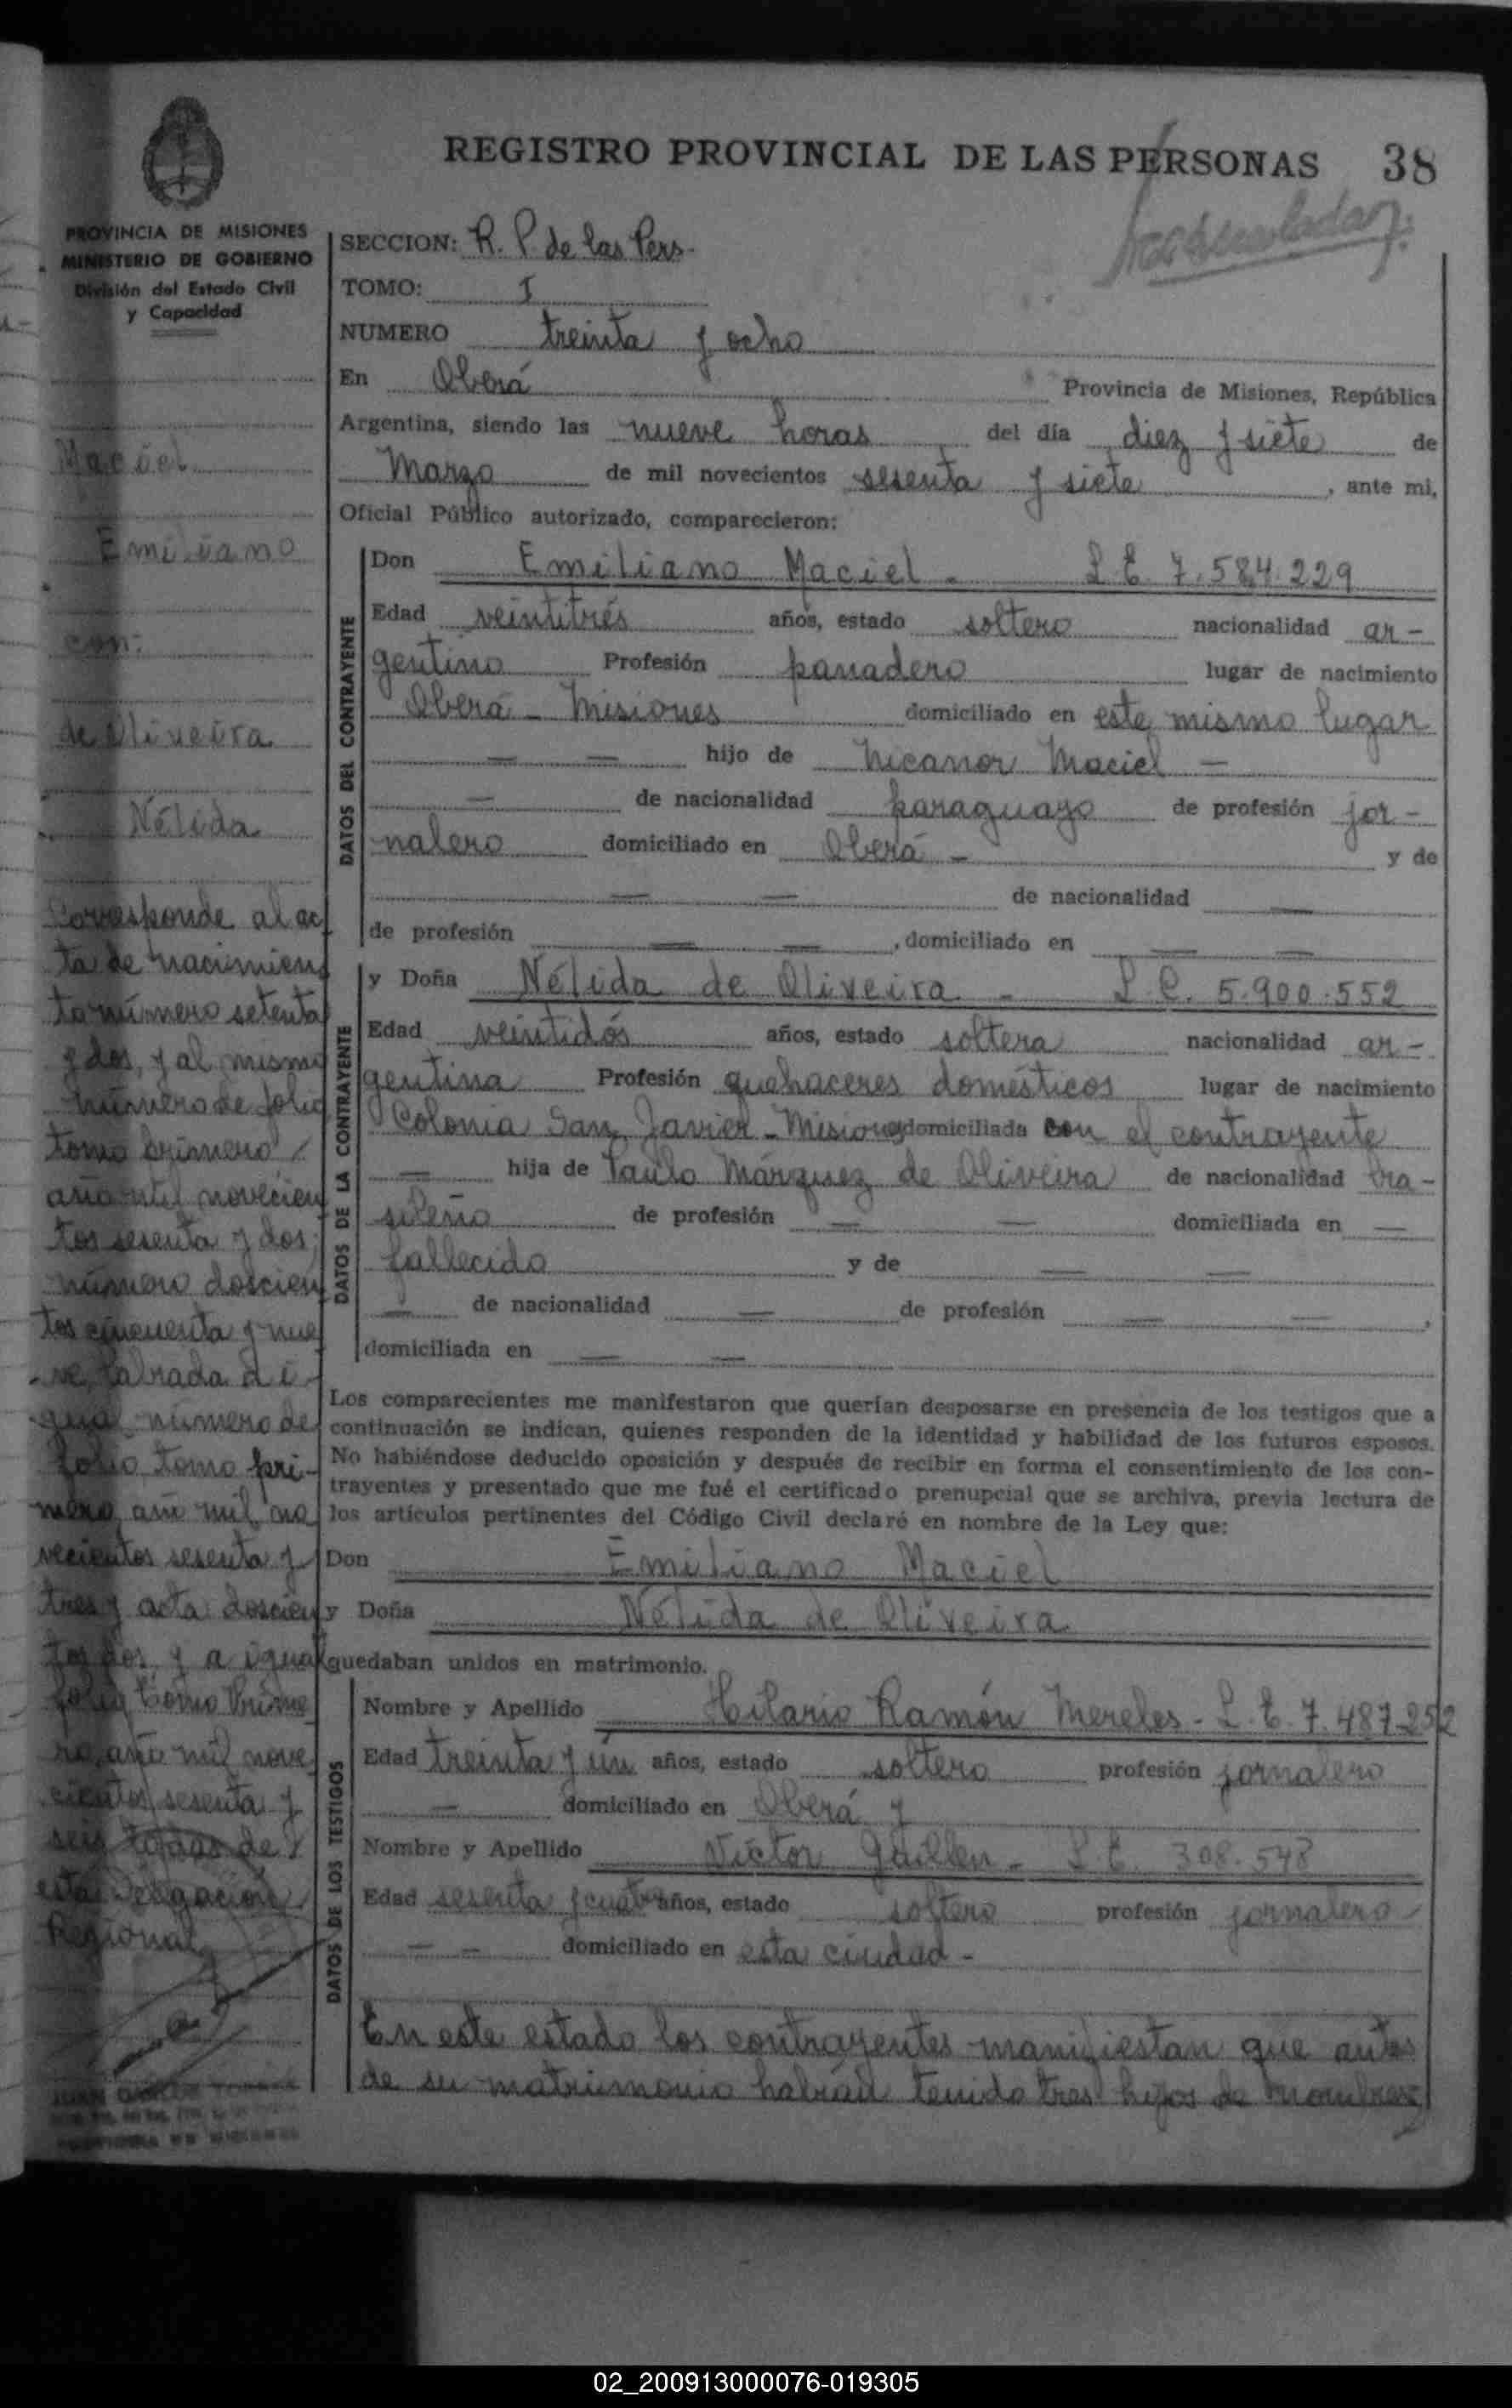 REGISTRO PROVINCIAL DE LAS PERSONAS 38
PROVINCIA DE MISIONES
MINISTERIO DE GOBIERNO
División del Estado Civil
y Capacidad
Maciel
Emiliano
con:
de Oliveira
Nélida
Corresponde al ac
ta de nacimien
to número setenta
y dos, y al mismo
número de folio
tomo primero
año mil novecien
tos sesenta y dos;
número doscien
tos cincuenta y nue
ve, labrada a i-
gual número de
folio tomo pri-
mero año mil no
vecientos sesenta y
tres y acta doscien
tos dos y a igual
folio tomo Prime
ro, año mil nove
cientos sesenta y
seis todas de
esta Delegación
Regional
SECCION: R. P. de las Pers.
TOMO: I
NUMERO treinta y ocho
En Oberá Provincia de Misiones, República
Argentina, siendo las nueve horas del día diez y siete de
Marzo de mil novecientos sesenta y siete, ante mi,
Oficial Público autorizado, comparecieron:
DATOS DEL CONTRAYENTE
Don Emiliano Maciel - L. E. 7.584.229
Edad veintitrés años, estado soltero nacionalidad ar-
gentino Profesión panadero lugar de nacimiento
Oberá - Misiones domiciliado en este mismo lugar
— — hijo de Nicanor Maciel —
— de nacionalidad paraguayo de profesión jor-
nalero domiciliado en Oberá - y de
— — de nacionalidad —
de profesión — —, domiciliado en — —
DATOS DE LA CONTRAYENTE
y Doña Nélida de Oliveira - L. C. 5.900.552
Edad veintidós años, estado soltera nacionalidad ar-
gentina Profesión quehaceres domésticos lugar de nacimiento
Colonia San Javier - Misiones domiciliada con el contrayente
— hija de Paulo Márquez de Oliveira de nacionalidad bra-
sileño de profesión — — domiciliada en —
fallecido y de — —
— de nacionalidad — de profesión — —,
domiciliada en — —
Los comparecientes me manifestaron que querían desposarse en presencia de los testigos que a
continuación se indican, quienes responden de la identidad y habilidad de los futuros esposos.
No habiéndose deducido oposición y después de recibir en forma el consentimiento de los con-
trayentes y presentado que me fué el certificado prenupcial que se archiva, previa lectura de
los artículos pertinentes del Código Civil declaré en nombre de la Ley que:
Don Emiliano Maciel
y Doña Nélida de Oliveira
quedaban unidos en matrimonio.
DATOS DE LOS TESTIGOS
Nombre y Apellido Hilario Ramón Mereles - L. E. 7.487.252
Edad treinta y un años, estado soltero profesión jornalero
— domiciliado en Oberá y
Nombre y Apellido Victor Guillen - L. E. 308.548
Edad sesenta y cuatro años, estado soltero profesión jornalero
— — domiciliado en esta ciudad -
En este estado los contrayentes manifiestan que antes
de su matrimonio habían tenido tres hijos de nombres
02_200913000076-019305